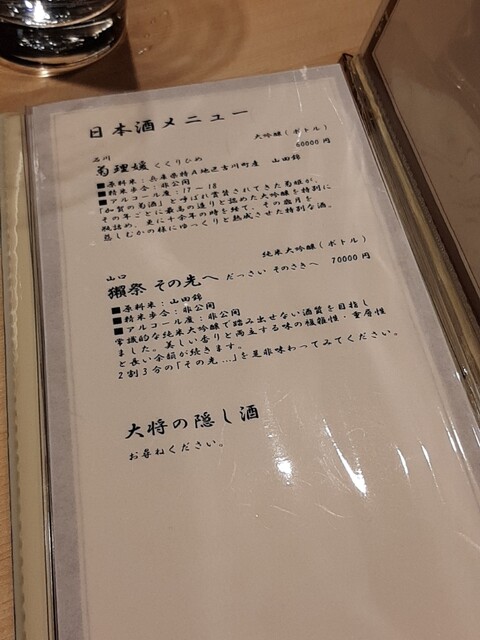 日本酒メニュー
大吟醸(ボトル)
石川
菊理媛 くくりひめ 60000円
■原料米:兵庫県特A地区吉川町産 山田錦
■精米歩合:非公開
■アルコール度:17−18
「加賀の菊酒」と呼ばれ賞賛されてきた菊姫が、
その年ごとに最高の造りと認めた大吟醸を特別に
瓶詰め、更に十余年の時を経て、その歳月を
慈しむかの様にゆっくりと熟成させた特別な酒。
純米大吟醸(ボトル)
山口
獺祭 その先へ だっさい そのさきへ 70000円
■原料米:山田錦
■精米歩合:非公開
■アルコール度:非公開
常識的な純米大吟醸で踏み出せない酒質を目指し
ました。美しい香りと両立する味の複雑性・重層性
と長い余韻が続きます。
2割3分の「その先…」を是非味わってみてください。
大将の隠し酒
お尋ねください。